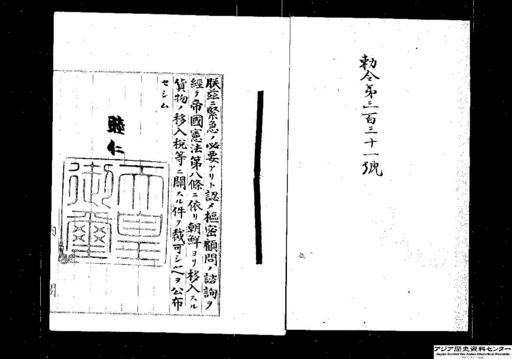 勅令第三百三十一號
朕茲ニ緊急ノ必要アリト認メ樞密顧問ノ諮詢ヲ
經テ帝國憲法第八條ニ依リ朝鮮ヨリ移入スル
貨物ノ移入税等ニ關スル件ヲ裁可シ之ヲ公布
セシム
睦仁
天皇
御璽
内閣
アジア歴史資料センター
Japan Center for Asian Historical Records